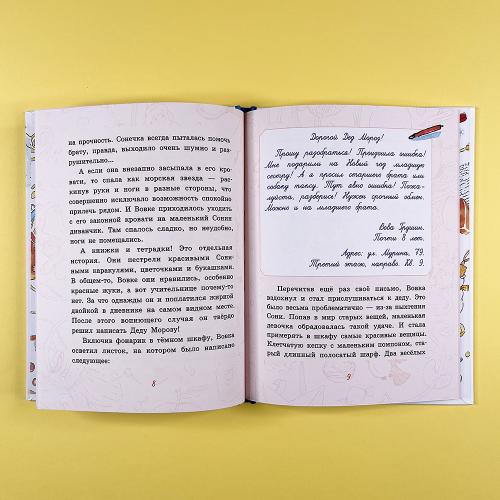 на прочность. Сонечка всегда пыталась помочь
брату, правда, выходило очень шумно и раз-
рушительно...
А если она внезапно засыпала в его кро-
вати, то спала как морская звезда — рас-
кинув руки и ноги в разные стороны, что
совершенно исключало возможность спокойно
прилечь рядом. И Вовке приходилось уходить
с его законной кровати на маленький Сонин
диванчик. Там спалось сладко, но неудобно,
ноги не помещались.
А книжки и тетрадки! Это отдельная
история. Они пестрели красивыми Сони-
ными каракулями, цветочками и букашками.
В общем-то, Вовке они нравились, особенно
красные жуки, а вот учительнице почему-то
нет. За что однажды он и поплатился жирной
двойкой в дневнике на самом видном месте.
После этого вопиющего случая он твёрдо
решил написать Деду Морозу!
Включив фонарик в тёмном шкафу, Вовка
осветил листок, на котором было написано
следующее:
8
Дорогой Дед Мороз!
Прошу разобраться! Произошла ошибка!
Мне подарили на Новый год младшую
сестру! А я просил старшего брата или
собаку таксу. Тут явно ошибка! Пожа-
луйста, разберись! Нужен срочный обмен.
Можно и на младшего брата.
Вова Грушин.
Почти 8 лет.
Адрес: ул. Мурина, 79.
Третий этаж, направо. Кв. 9.
Перечитав ещё раз своё письмо, Вовка
вздохнул и стал прислушиваться к деду. Это
было весьма проблематично — из-за пыхтения
Сони. Попав в мир старых вещей, маленькая
девочка обрадовалась такой удаче. И стала
примерять в шкафу самые красивые вещицы.
Клетчатую кепку с маленьким помпоном, ста-
рый длинный полосатый шарф. Два весёлых
9